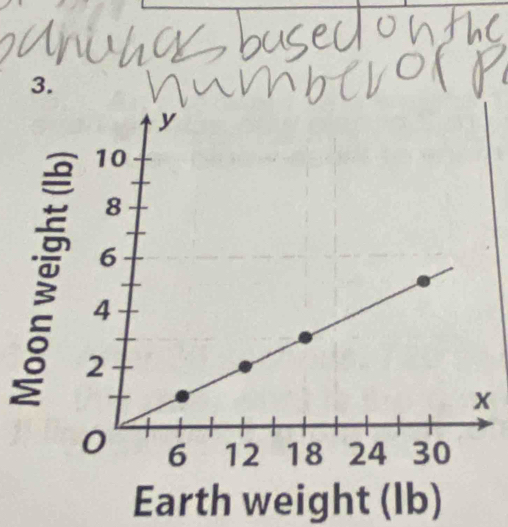 bananas based on the
number of
3.
y
Moon weight (lb)
10
8
6
4
2
O
x
6 12 18 24 30
Earth weight (lb)